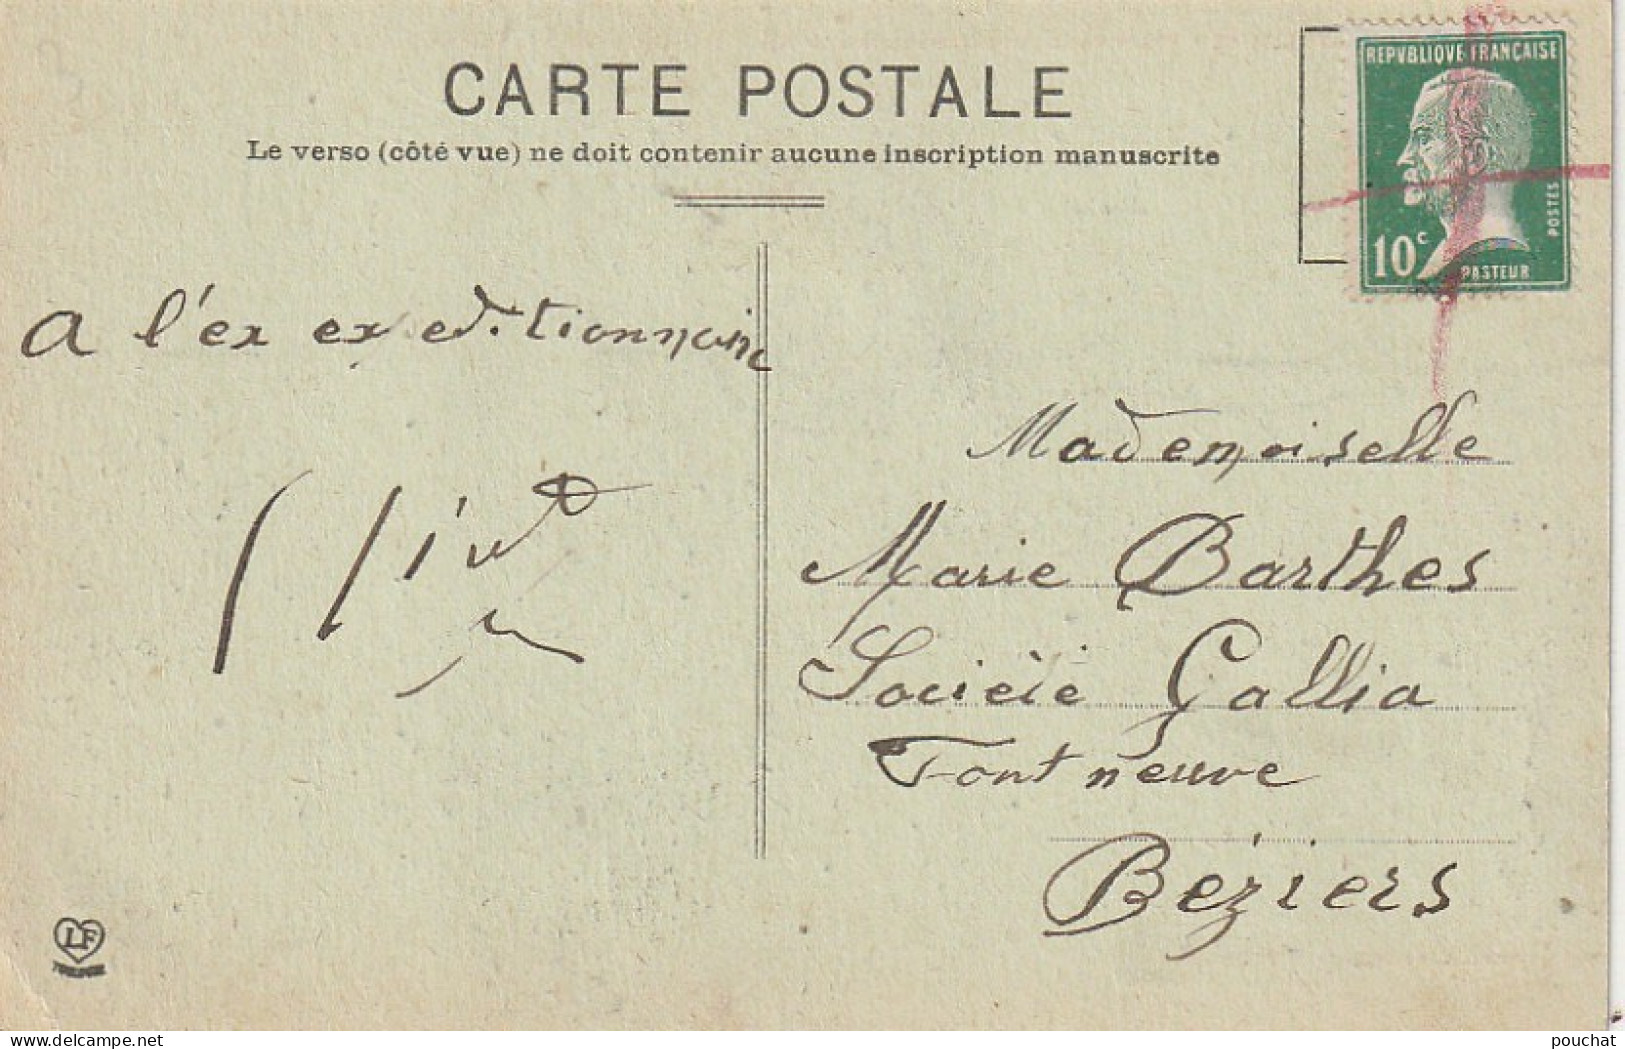 CARTE POSTALE
Le verso (côté vue) ne doit contenir aucune inscription manuscrite
REPVBLIQVE FRANÇAISE
10c
POSTES
PASTEUR
a l'ex expeditionnaire
Mademoiselle
Marie Barthes
Société Gallia
Font neuve
Béziers
LF
TOULOUSE
delcampe.net
pouchat